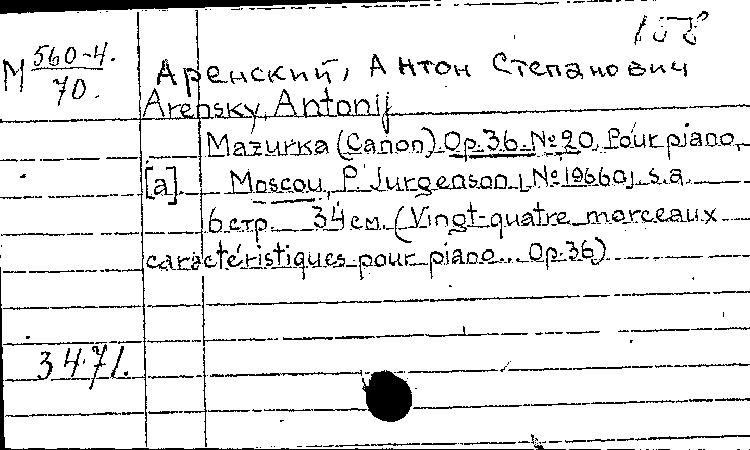 158
M 560-4.
70.
Аренский, Антон Степанович
Arensky, Antonij
Mazurka (Canon). Op. 36. № 20. Pour piano.
[a] Moscou, P. Jurgenson, [№ 19660], s. a.
6 стр. 34 см. (Vingt-quatre morceaux
caractéristiques pour piano... Op. 36)
3471.